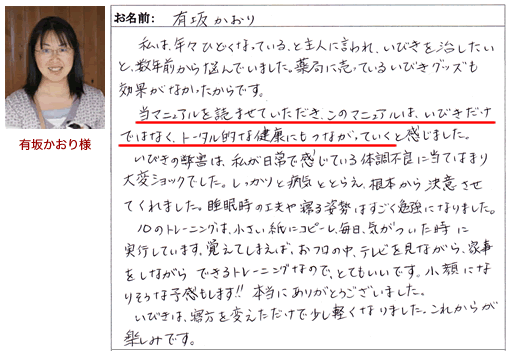 お名前: 有坂かおり
私は、年々ひどくなっている、と主人に言われ、いびきを治したい
と、数年前から悩んでいました。薬局に売っているいびきグッズも
効果がなかったからです。
当マニュアルを読ませていただき、このマニュアルは、いびきだけ
ではなく、トータル的な健康にもつながっていくと感じました。
いびきの弊害は、私が日常で感じている体調不良に当てはまり
大変ショックでした。しっかりと病気ととらえ、根本から決意させ
てくれました。睡眠時の工夫や寝る姿勢はすごく勉強になりました。
10のトレーニングは、小さい紙にコピーし、毎日、気がついた時に
実行しています。覚えてしまえば、お フロの中、テレビを見ながら、家事
をしながら できるトレーニングなので、とてもいいです。小顔にな
りそうな予感もします!! 本当にありがとうございました。
いびきは、寝方を変えただけで少し軽くなりました。これからが
楽しみです。
有坂かおり様